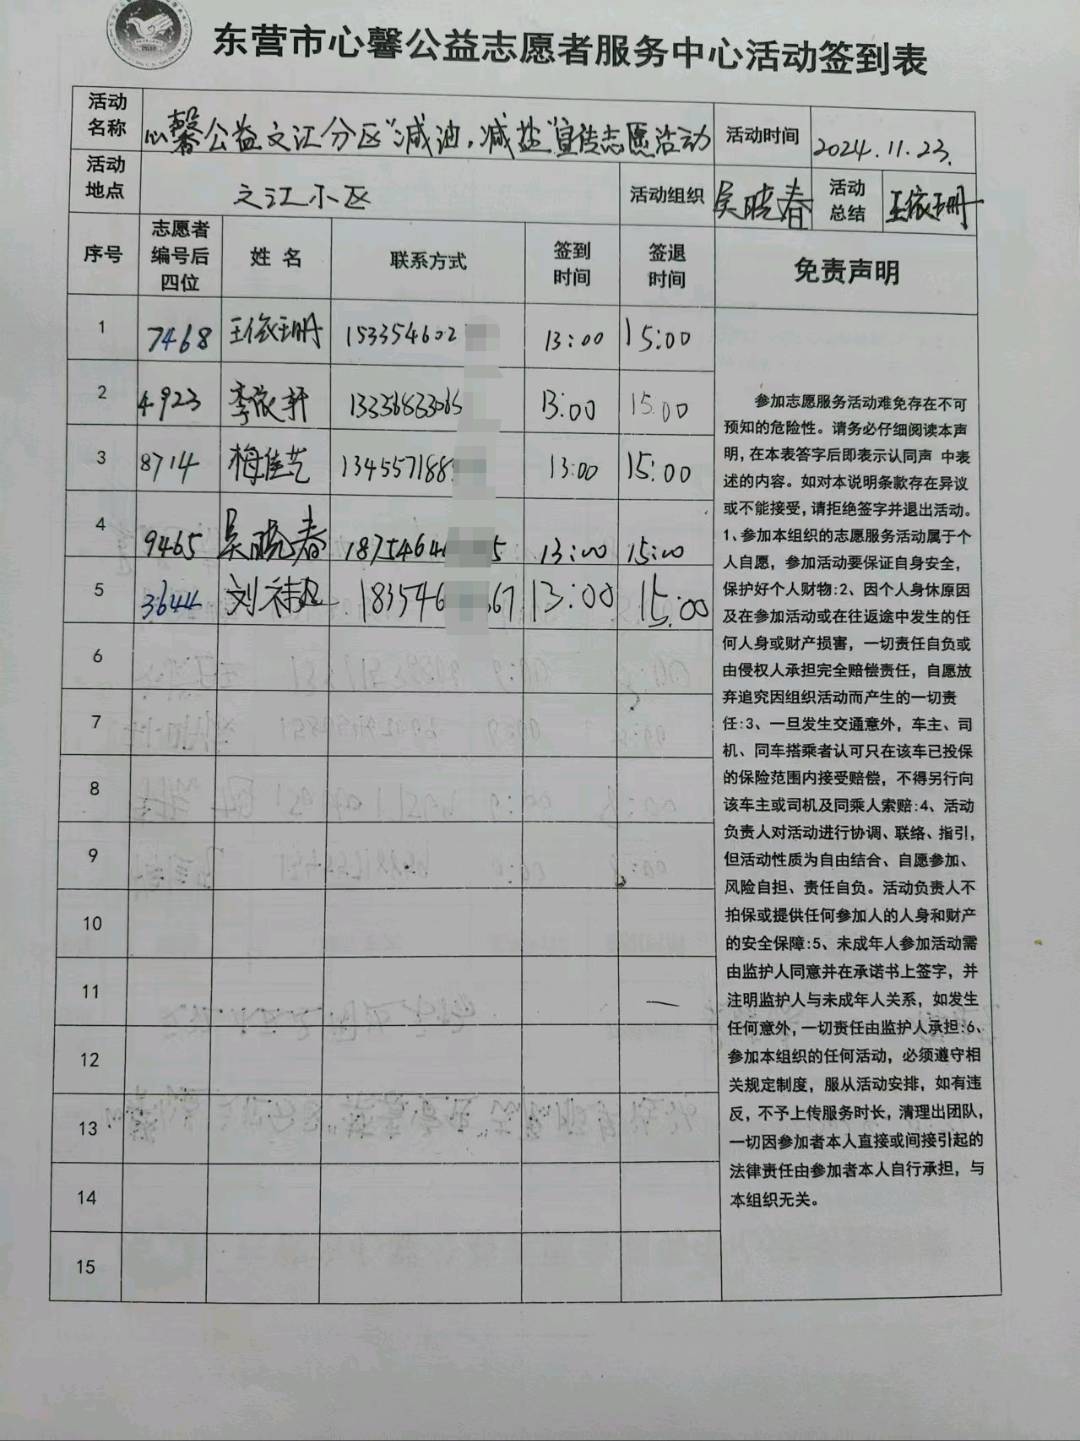 东营市心馨公益志愿者服务中心活动签到表
活动名称 心馨公益文汇分区"减油,减盐"宣传志愿活动 活动时间 2024.11.23.
活动地点 文汇小区 活动组织 吴晓春 活动总结 王依珊
序号 志愿者编号后四位 姓名 联系方式 签到时间 签退时间 免责声明
1 7468 王依珊 153354602 13:00 15:00
2 4923 李依轩 13356833065 13:00 15:00
3 8714 梅佳艺 134557188 13:00 15:00
4 9465 吴晓春 1875464 5 13:00 15:00
5 3644 刘 183546 67 13:00 15:00
6
7
8
9
10
11
12
13
14
15
参加志愿服务活动难免存在不可
预知的危险性。请务必仔细阅读本声
明,在本表答字后即表示认同声 中表
述的内容。如对本说明条款存在异议
或不能接受,请拒绝签字并退出活动。
1、参加本组织的志愿服务活动属于个
人自愿,参加活动要保证自身安全,
保护好个人财物:2、因个人身休原因
及在参加活动或在往返途中发生的任
何人身或财产损害,一切责任自负或
由侵权人承担完全赔偿责任,自愿放
弃追究因组织活动而产生的一切责
任:3、一旦发生交通意外,车主、司
机、同车搭乘者认可只在该车已投保
的保险范围内接受赔偿,不得另行向
该车主或司机及同乘人索赔:4、活动
负责人对活动进行协调、联络、指引,
但活动性质为自由结合、自愿参加、
风险自担、责任自负。活动负责人不
拍保或提供任何参加人的人身和财产
的安全保障:5、未成年人参加活动需
由监护人同意并在承诺书上签字,并
注明监护人与未成年人关系,如发生
任何意外,一切责任由监护人承担:6、
参加本组织的任何活动,必须遵守相
关规定制度,服从活动安排,如有违
反,不予上传服务时长,清理出团队,
一切因参加者本人直接或间接引起的
法律责任由参加者本人自行承担,与
本组织无关。